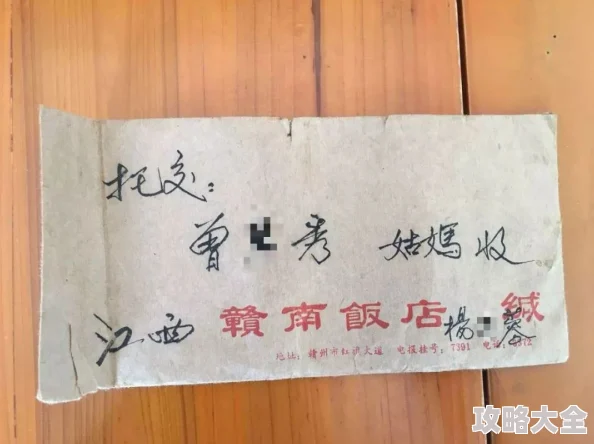 托交：
曾 秀 姑媽 收
江西 贛南飯店 楊 蓉 緘
地址：贛州市红旗大道 电报挂号：7391 电话：
攻略大全